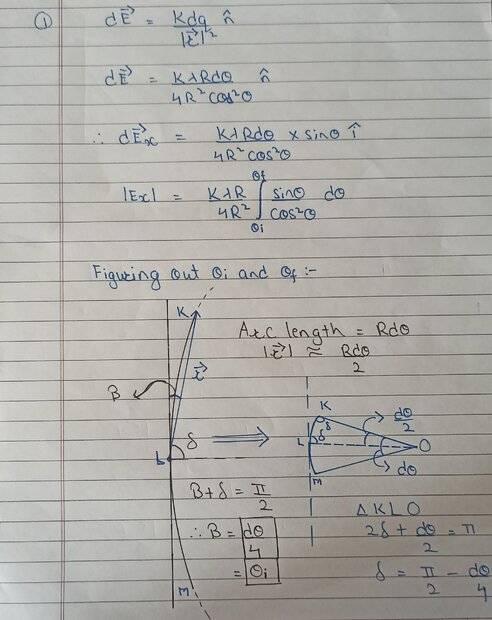 ① dE⃗ = Kdq/|r⃗|² n̂
dE⃗ = KλRdθ/4R²cos²θ n̂
∴ dE⃗x = KλRdθ/4R²cos²θ × sinθ î
|Ex| = KλR/4R² ∫θi^θf sinθ/cos²θ dθ
Figuring out θi and θf :-
K
Arc length = Rdθ
|r⃗| ≈ Rdθ/2
r⃗
B
L
δ
K
δ
dθ/2
L
δ
O
M
dθ
B+δ = π/2
∴ B = dθ/4
= θi
M
Δ KLO
2δ + dθ/2 = π
δ = π/2 - dθ/4